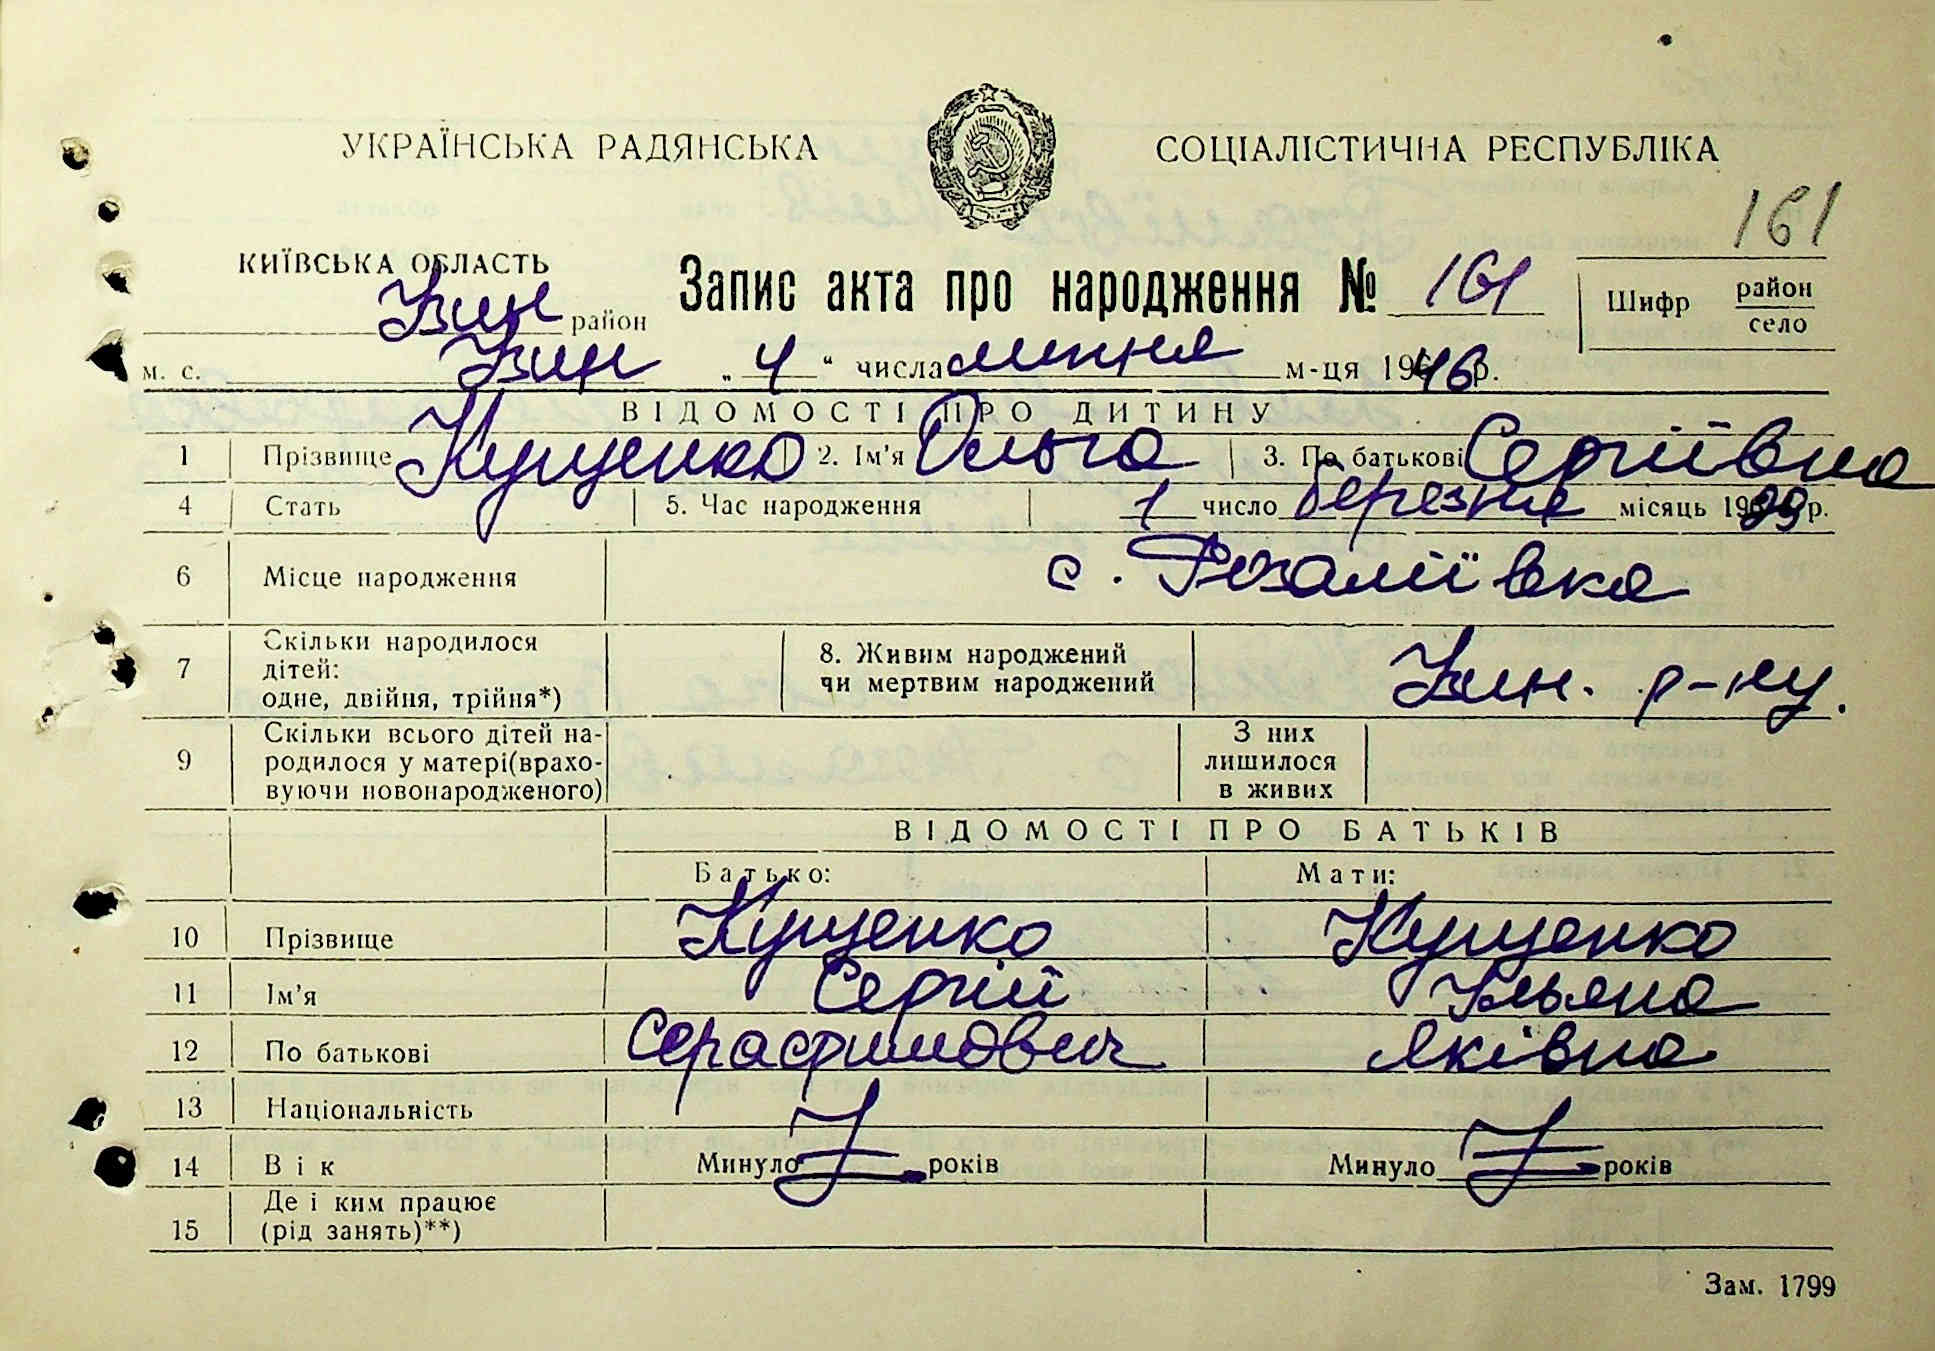 УКРАЇНСЬКА РАДЯНСЬКА СОЦІАЛІСТИЧНА РЕСПУБЛІКА
161
КИЇВСЬКА ОБЛАСТЬ
Запис акта про народження № 161
Шифр район село
Узин район
м. с. Узин „ 4 “ числа липня м-ця 1946 р.
ВІДОМОСТІ ПРО ДИТИНУ
1 Прізвище Кущенко 2. Ім'я Ольга 3. По батькові Сергіївна
4 Стать 5. Час народження 1 число березня місяць 1929 р.
6 Місце народження с. Розаліївка
7 Скільки народилося дітей: одне, двійня, трійня*) 8. Живим народжений чи мертвим народжений Узин. р-ну.
9 Скільки всього дітей народилося у матері(враховуючи новонародженого) З них лишилося в живих
ВІДОМОСТІ ПРО БАТЬКІВ
Батько: Мати:
10 Прізвище Кущенко Кущенко
11 Ім'я Сергій Ульяна
12 По батькові Серафимович Яківна
13 Національність
14 Вік Минуло років Минуло років
15 Де і ким працює (рід занять)**)
Зам. 1799